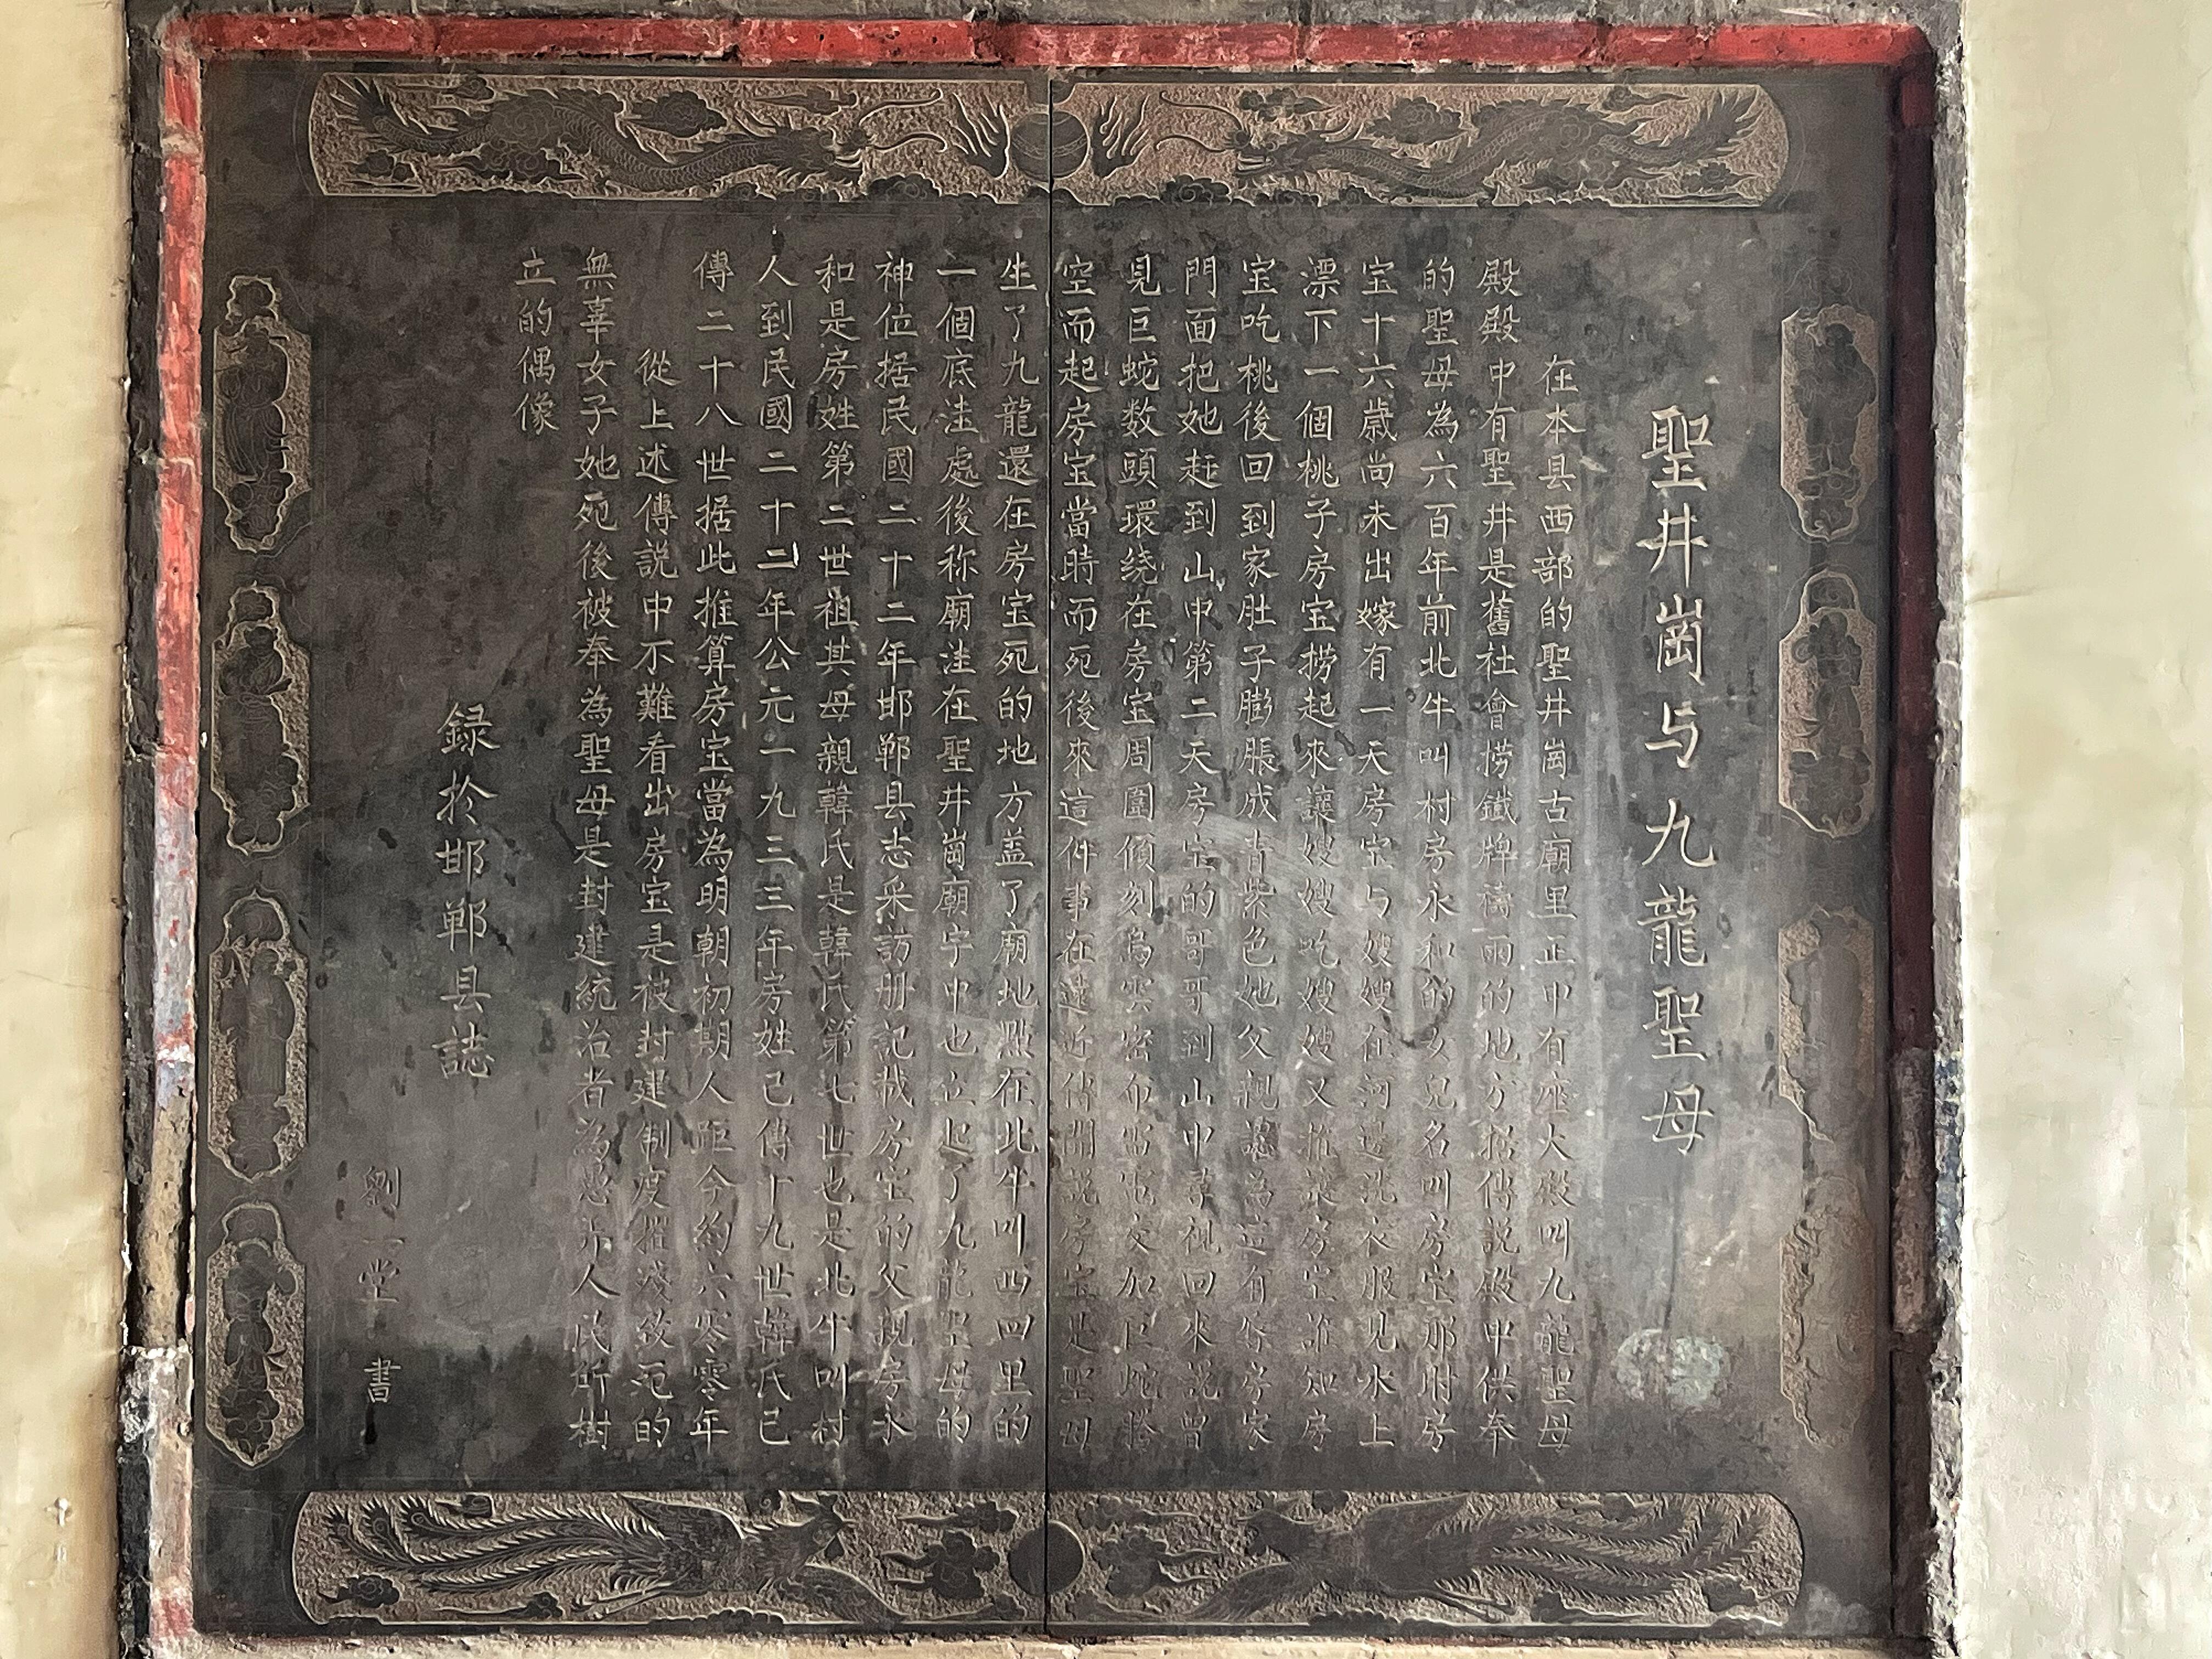 聖井崗与九龍聖母
在本县西部的聖井崗古廟里正中有座大殿叫九龍聖母
殿殿中有聖井是舊社會捞鐵牌祷雨的地方据傳説殿中供奉
的聖母為六百年前北牛叫村房永和的女兒名叫房宝那时房
宝十六歳尚未出嫁有一天房宝与嫂嫂在河邊洗衣服見水上
漂下一個桃子房宝捞起來讓嫂嫂吃嫂嫂又推讓房宝誰知房
宝吃桃後回到家肚子膨脹成青紫色她父親認為這有辱房家
門面把她赶到山中第二天房宝的哥哥到山中尋視回來説曾
見巨蛇数頭環绕在房宝周圍傾刻烏雲密布雷電交加巨蛇腾
空而起房宝當時而死後來這件事在遠近傳開説房宝是聖母
生了九龍還在房宝死的地方盖了廟地點在北牛叫西四里的
一個底洼處後称廟洼在聖井崗廟宇中也立起了九龍聖母的
神位据民國二十二年邯郸县志采訪册記載房宝的父親房永
和是房姓第二世祖其母親韓氏是韓氏第七世也是北牛叫村
人到民國二十二年公元一九三三年房姓已傳十九世韓氏已
傳二十八世据此推算房宝當為明朝初期人距今約六零零年
從上述傳説中不難看出房宝是被封建制度摧殘致死的
無辜女子她死後被奉為聖母是封建統治者為愚弄人民所樹
立的偶像
録於邯郸县誌
劉一堂 書